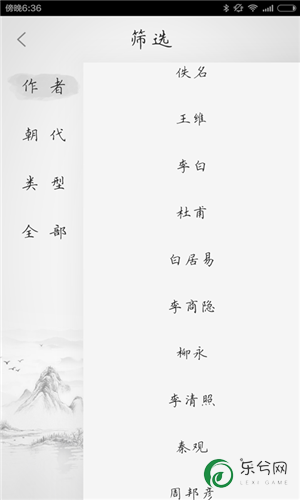 傍晚6:36
筛选
作者
朝代
类型
全部
佚名
王维
李白
杜甫
白居易
李商隐
柳永
李清照
秦观
周邦彦
乐兮网
LEXI GAME